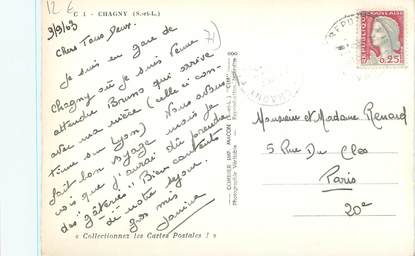 12 €
C 1 - CHAGNY (S.-et-L.)
3/9/63
Chers Tous Deux.
Je suis en gare de
Chagny où je suis venue
attendre Bruno qui arrive
avec ma mère (elle si con-
tinue sur Lyon) Nous avons
fait bon voyage mais je
vois que j'aurai dû prendre
des "gâteries" Bien contents
de notre séjour.
gros mis
Janine
« Collectionnez les Cartes Postales ! »
COMBIER IMP. MACON
Photographie Véritable - Reproduction interdite
CHAGNY
REPUBLIQUE FRANÇAISE
0,25
Monsieur et Madame Renard
5 Rue Du Clos
Paris
20e